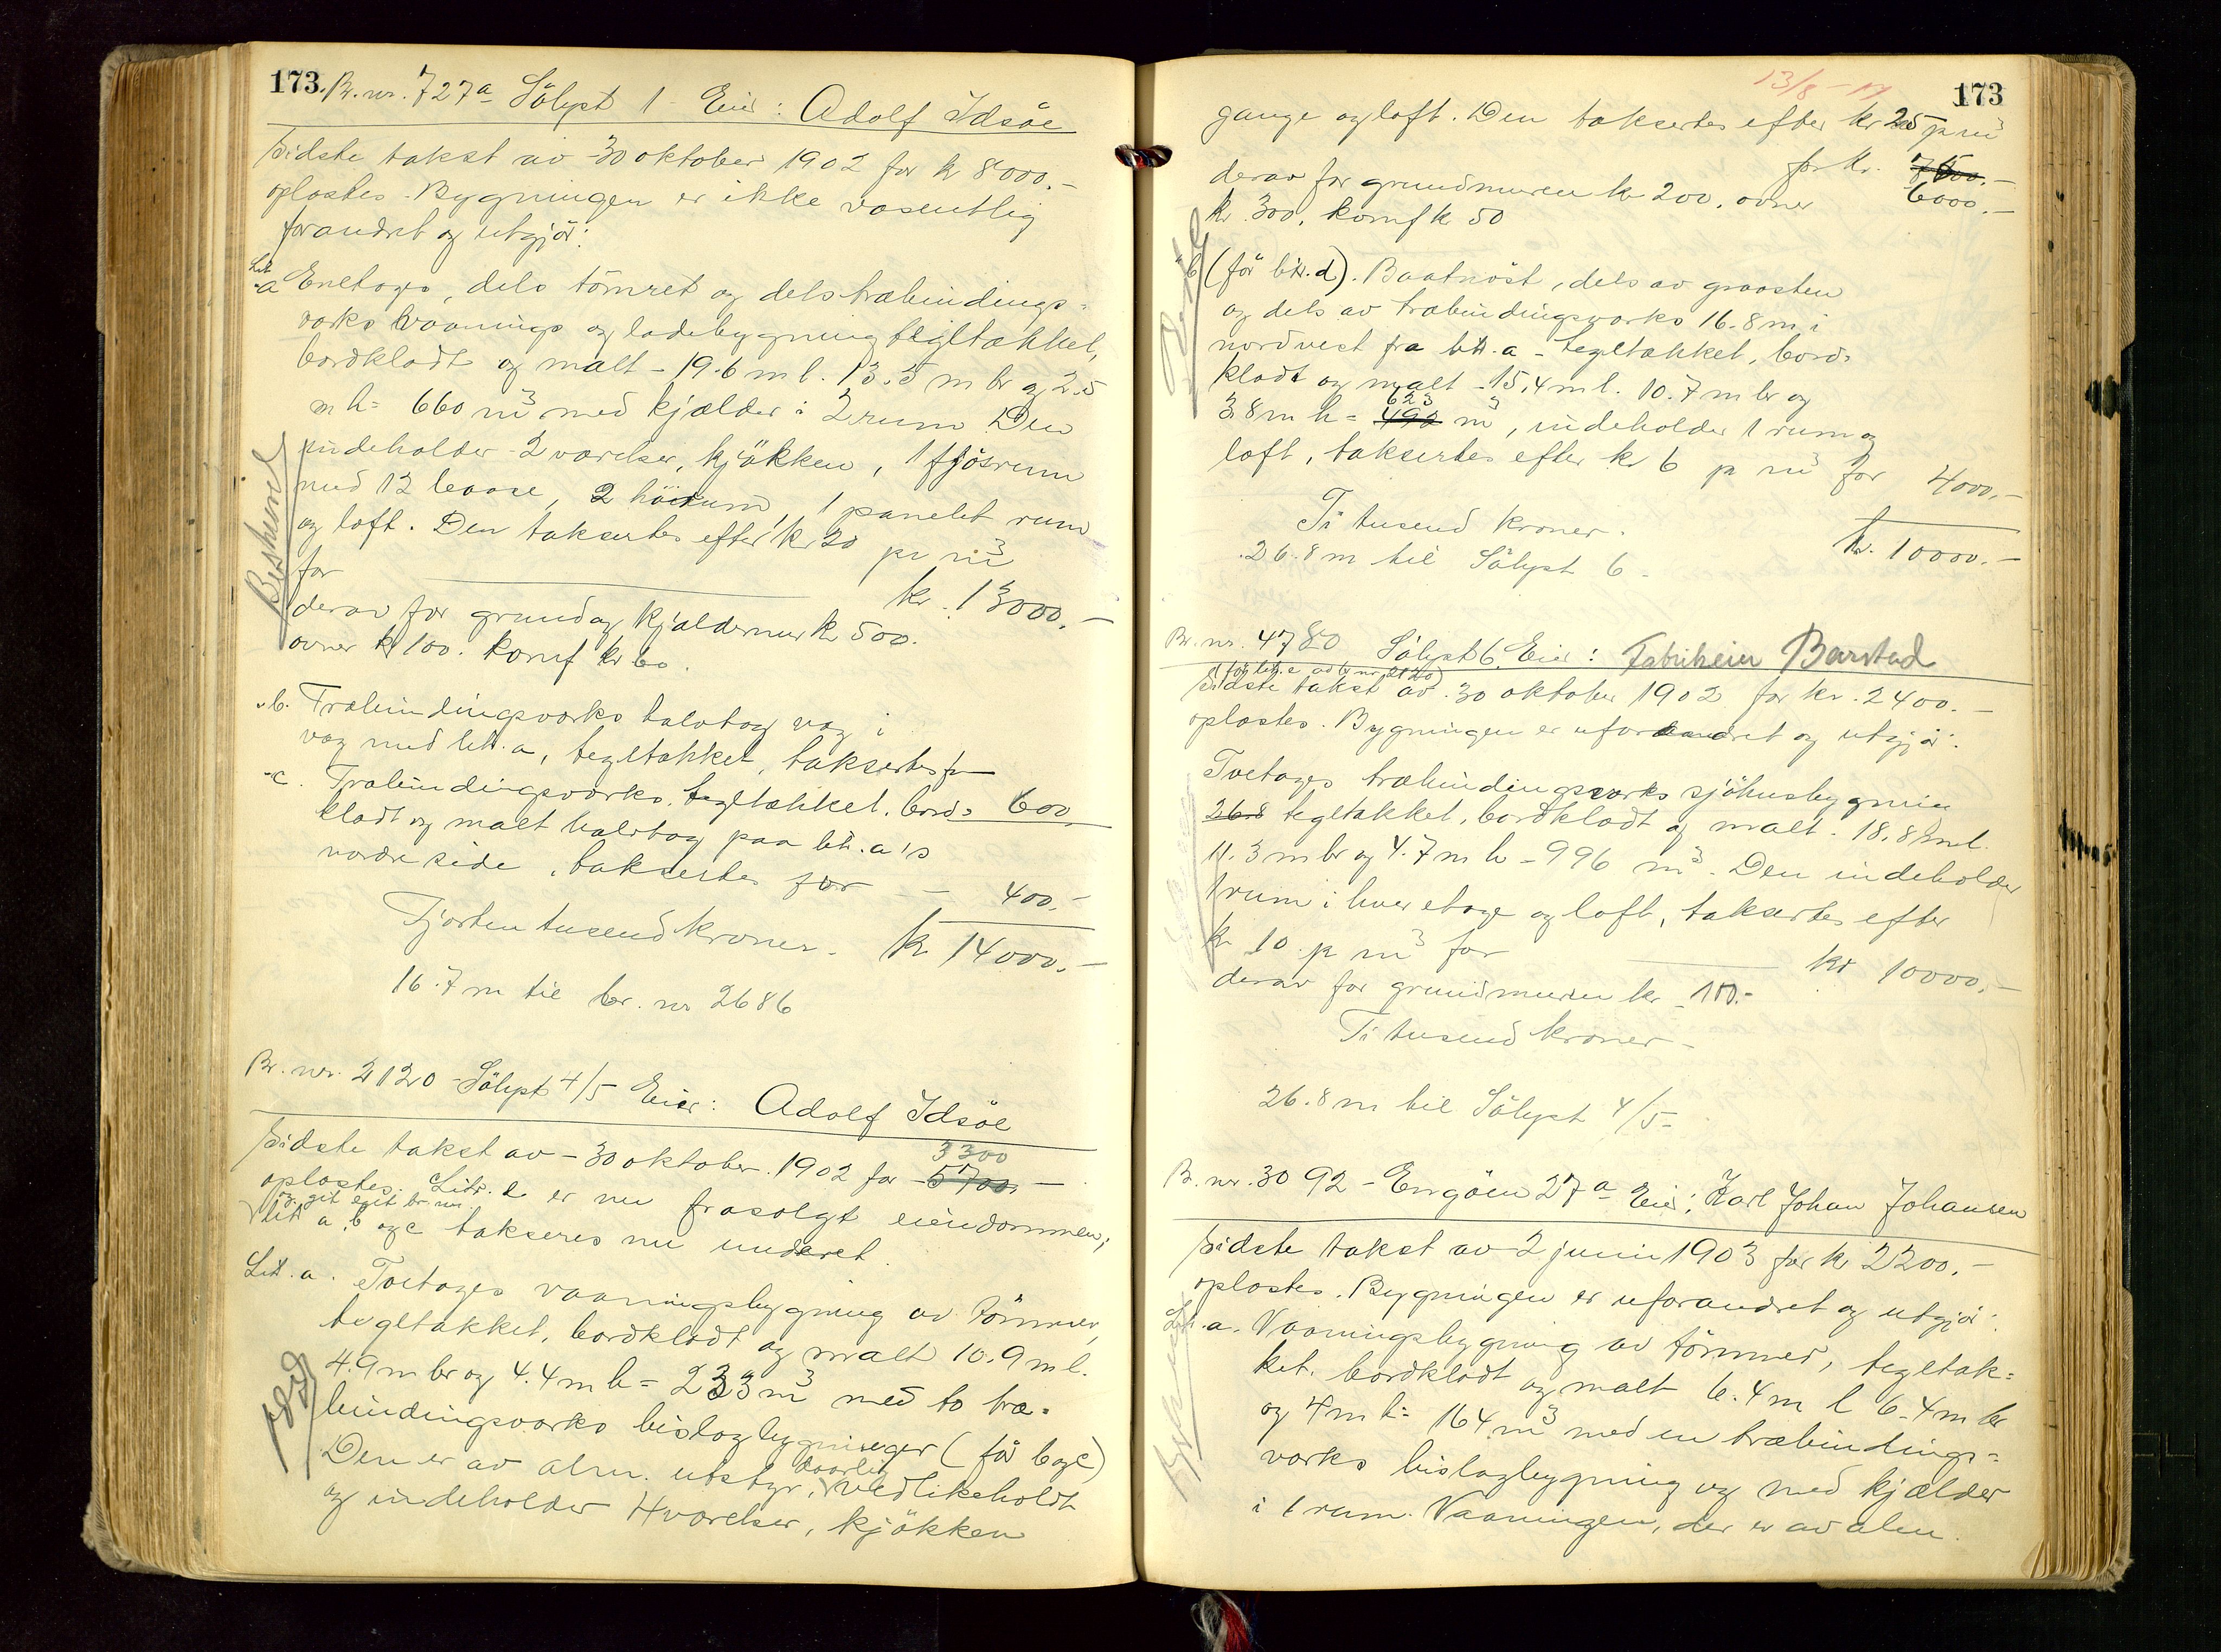 173. Br. nr. 727a Sölyst 1 - Eier: Adolf Idsöe
Sidste takst av 30 oktober 1902 for kr 8000.-
oplæstes. Bygningen er ikke væsentlig
forandret og utgjör:
Lit.
a Enetages, dels tömret og dels træbindings-
værks vaanings og ladebygning tegltækket,
bordklædt og malt - 19.6 m l. 13.5 m br og 2.5
m h = 660 m3 med kjælder i 2 rum Den
indeholder 2 værelser, kjökken, 1 fjösrum
med 12 baase, 2 hörum, 1 panelet rum
og loft. Den taksertes efter kr 20 pr m3
for kr. 13000.-
derav for grund og kjældermur kr 500.
ovner kr 100. komf kr 60.
Beskrevet
" b. Træbindingsværks halvtag væg i
væg med litr. a, tegltækket, taksertes for
600
- c. Træbindingsværks, tegltækket, bord-
klædt og malt halvtag paa litr. a's
nordre side, taksertes for - 400.-
Fjorten tusend kroner. kr 14000.-
16.7 m til br. nr 2686
Br. nr. 2120 - Sölyst 4/5 Eier: Adolf Idsöe
Sidste takst av - 30 oktober 1902 for 5700.- 3300
oplæstes. Litr. d er nu frasolgt eiendommen;
og git eget br nr
lit a, b og c takseres nu under et.
Lit. a. Toetages vaaningsbygning av tömmer,
tegltækket, bordklædt og malt 10.9 m l.
4.9 m br og 4.4 m h = 233 m3 med to træ-
bindingsværks bislagbygninger (för b og c)
Den er av alm. utstyr, daarlig vedlikeholdt
og indeholder 4 værelser, kjökken
13/8 - 17
173
gange og loft. Den taksertes efter kr 25 p m3
for kr. 7500.-
derav for grundmuren kr 200, ovner 6000.-
kr. 300, komf kr 50
(för litr. d). Baatnöst, dels av graasten
og dels av træbindingsværks 16.8 m i
nordvest fra litr. a - tegltækket, bord-
klædt og malt - 15.4 m l. 10.7 m br og
3.8 m h = 490 623 m3, indeholder 1 rum og
loft, taksertes efter kr 6 p m3 for 4000.-
Ti tusend kroner. kr. 10000.-
26.8 m til Sölyst 6 -
Br. nr. 4780 Sölyst 6 Eier: Fabrikeier Barstad
(för lit. d av br nr 2120)
Sidste takst av 30 oktober 1902 for kr. 2400.-
oplæstes. Bygningen er uforandret og utgjör:
Toetages træbindingsværks sjöhusbygning
26.8 tegltækket, bordklædt og malt - 18.8 m l.
11.3 m br og 4.7 m h - 996 m3. Den indeholder
1 rum i hver etage og loft, taksertes efter
kr 10 p m3 for kr 10000.-
derav for grundmuren kr 100.-
Ti tusend kroner -
26.8 m til Sölyst 4/5 -
Br. nr. 3092 - Engöen 27a Eier: Karl Johan Johansen
Sidste takst av 2 juni 1903 for kr 2200.-
oplæstes. Bygningen er uforandret og utgjör:
Lit. a. Vaaningsbygning av tömmer, tegltæk-
ket, bordklædt og malt 6.4 m l 6.4 m br
og 4 m h = 164 m3 med en træbindings-
værks bislagbygning og med kjælder
i 1 rum. Vaaningen, der er av alm.